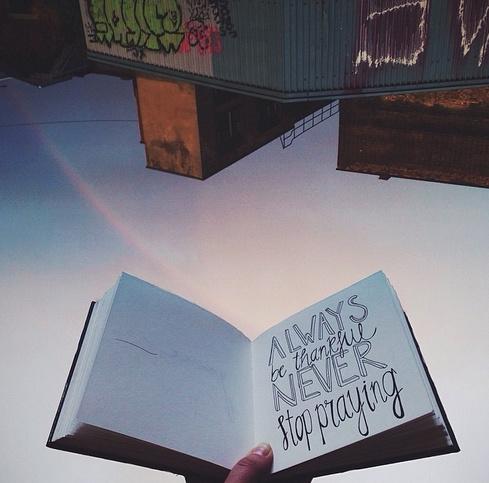 ALWAYS
be thankful
+
NEVER
stop praying